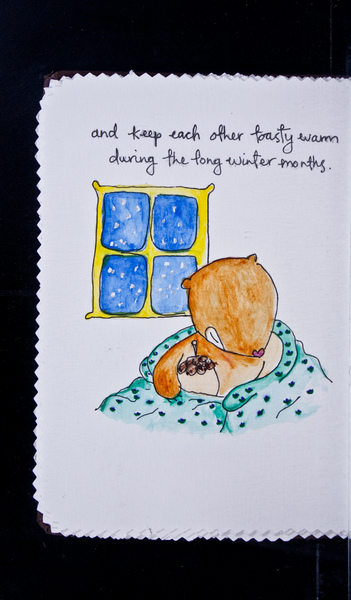 and keep each other toasty warm
during the long winter months.